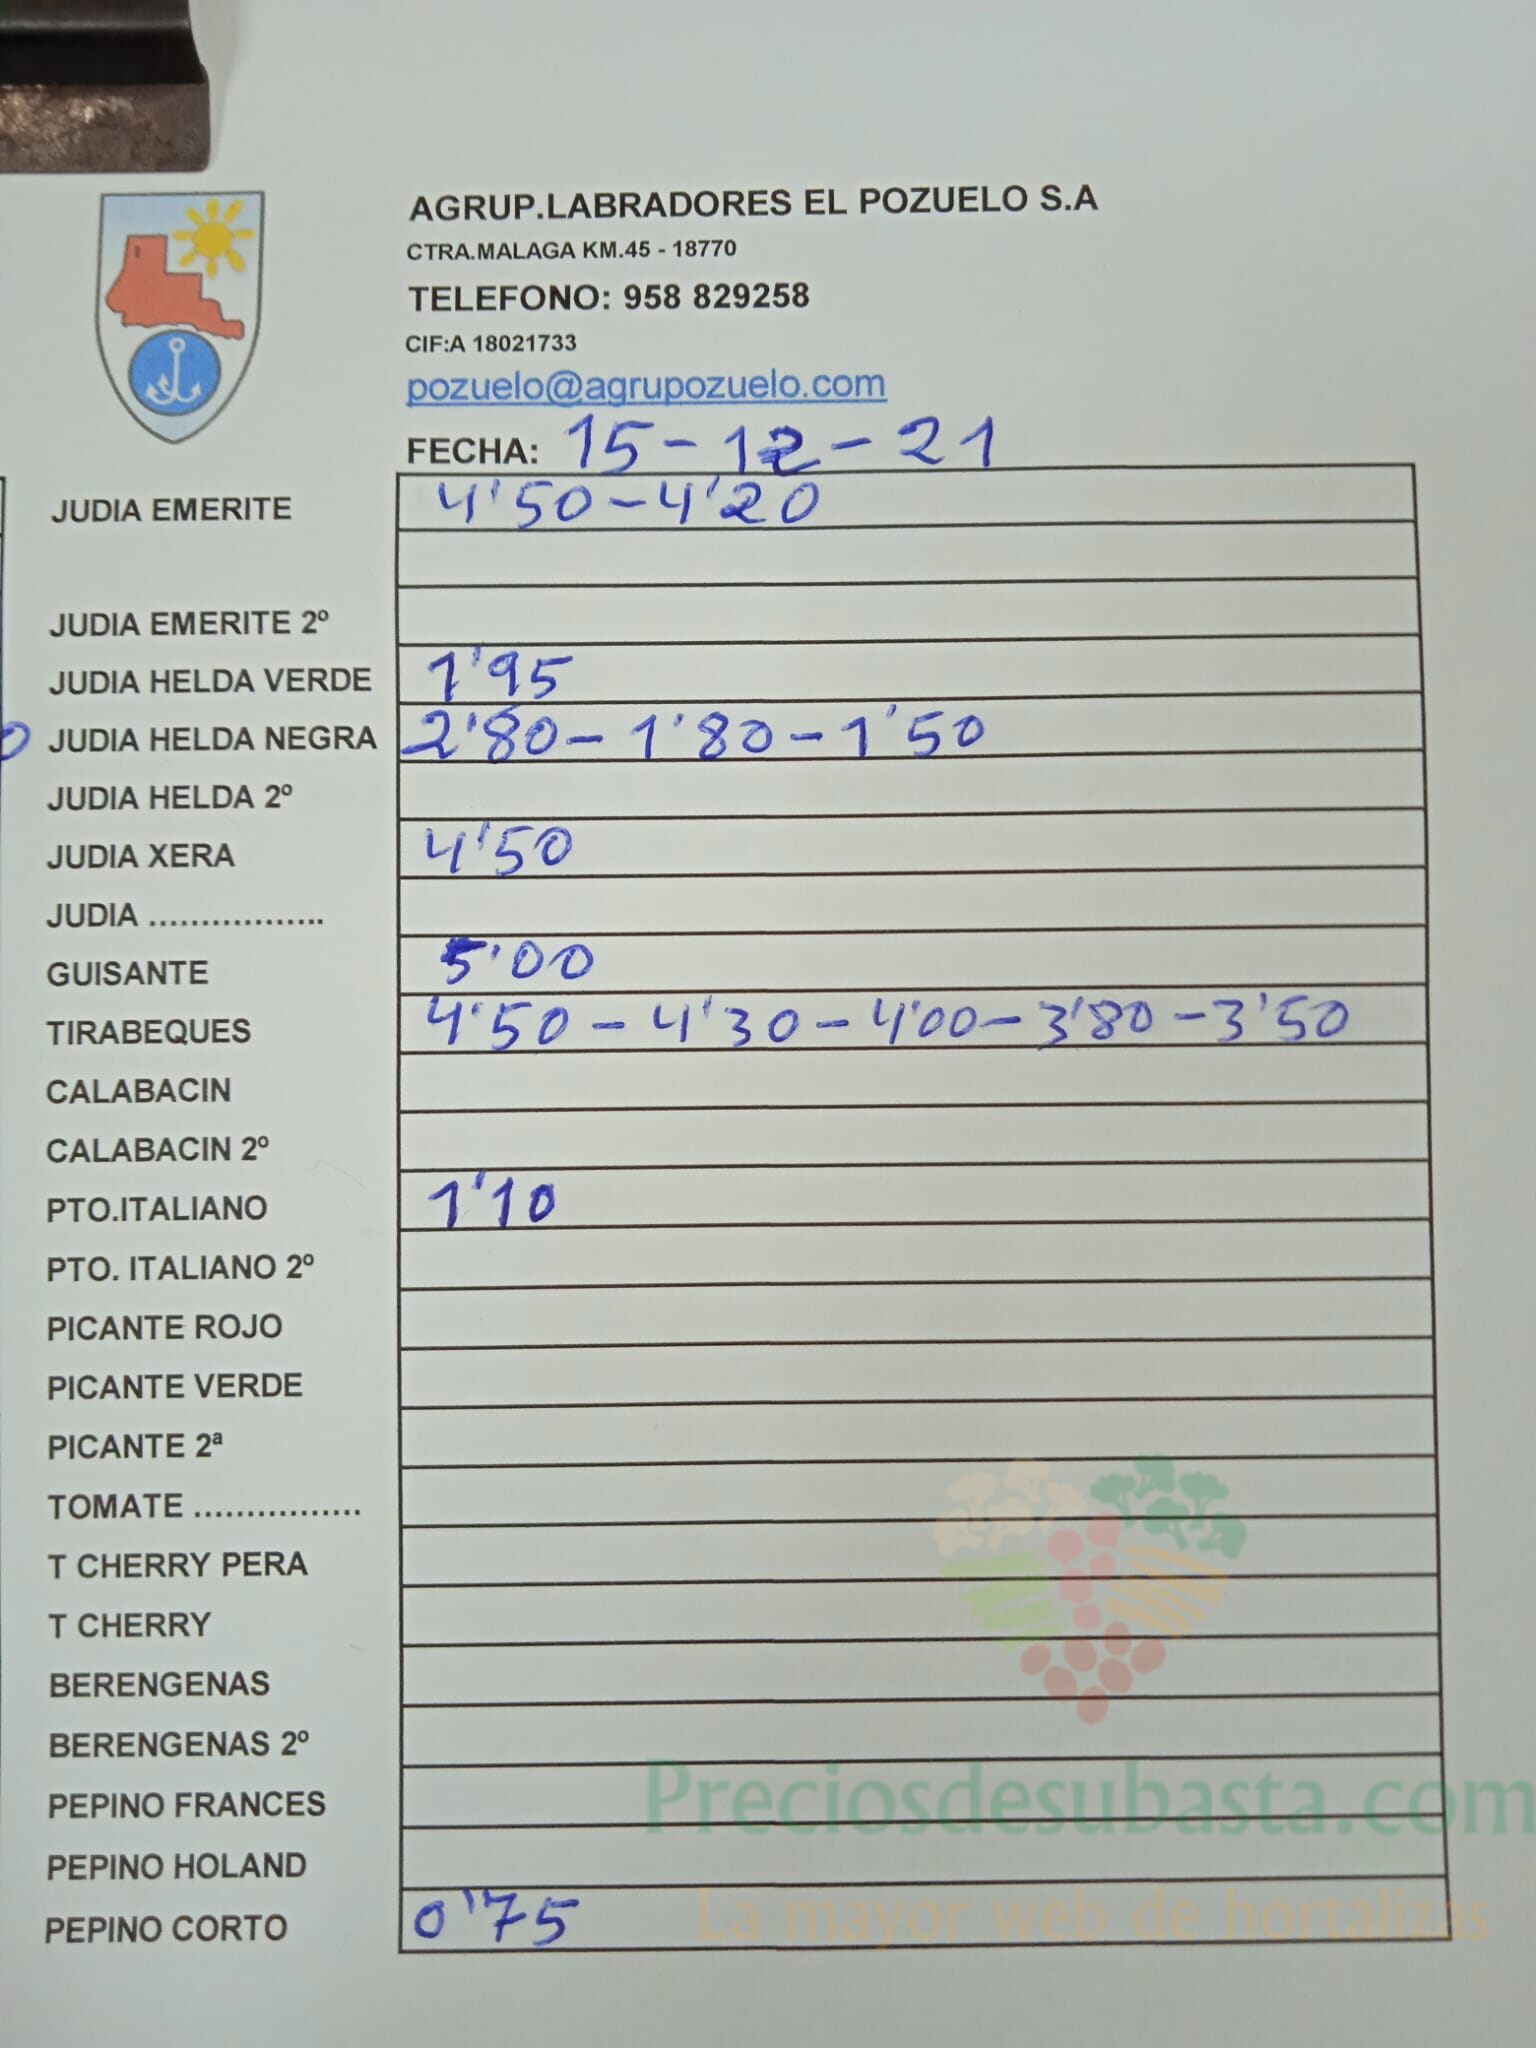 AGRUP.LABRADORES EL POZUELO S.A
CTRA.MALAGA KM.45 - 18770
TELEFONO: 958 829258
CIF:A 18021733
pozuelo@agrupozuelo.com
FECHA: 15-12-21
JUDIA EMERITE 4'50-4'20
JUDIA EMERITE 2º
JUDIA HELDA VERDE 1'95
JUDIA HELDA NEGRA 2'80-1'80-1'50
JUDIA HELDA 2º
JUDIA XERA 4'50
JUDIA .................
GUISANTE 5'00
TIRABEQUES 4'50-4'30-4'00-3'80-3'50
CALABACIN
CALABACIN 2º
PTO.ITALIANO 1'10
PTO. ITALIANO 2º
PICANTE ROJO
PICANTE VERDE
PICANTE 2ª
TOMATE ................
T CHERRY PERA
T CHERRY
BERENGENAS
BERENGENAS 2º
PEPINO FRANCES
PEPINO HOLAND
PEPINO CORTO 0'75
Preciosdesubasta.com
La mayor web de hortalizas